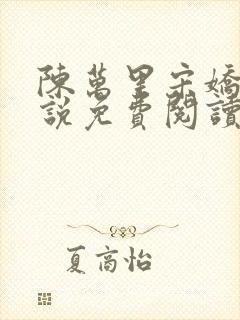 陳萬里宋嬌
說免費閱讀
夏高怡